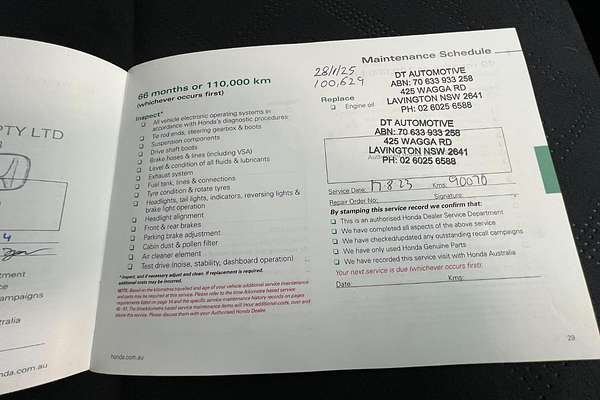 PTY LTD
4
tment
ce
ampaigns
tralia
nda.com.au
Maintenance Schedule
66 months or 110,000 km
(whichever occurs first)
Inspect*
All vehicle electronic operating systems in
accordance with Honda's diagnostic procedures:
Tie rod ends, steering gearbox & boots
Suspension components
Drive shaft boots
Brake hoses & lines (including VSA)
Level & condition of all fluids & lubricants
Exhaust system
Fuel tank, lines & connections
Tyre condition & rotate tyres
Headlights, tail lights, indicators, reversing lights &
brake light operation
Headlight alignment
Front & rear brakes
Parking brake adjustment
Cabin dust & pollen filter
Air cleaner element
Test drive (noise, stability, dashboard operation)
* Inspect, and if necessary adjust and clean. If replacement is required,
additional costs may be incurred.
NOTE: Based on the kilometres travelled and age of your vehicle additional service maintenance
and parts may be required at this service. Please refer to the time-/kilometre based service
requirements listed on page 14 and the specific service maintenance history records on pages
above this service. Please discuss them with your Authorised Honda Dealer.
honda.com.au
28/1/25
100,629
DT AUTOMOTIVE
ABN: 70 633 933 258
425 WAGGA RD
LAVINGTON NSW 2641
PH: 02 6025 6588
Replace
Engine oil
DT AUTOMOTIVE
ABN: 70 633 933 258
425 WAGGA RD
LAVINGTON NSW 2641
PH: 02 6025 6588
Service Date: 17-8-23 Kms: 90070
Repair Order No: Signature:
By stamping this service record we confirm that:
This is an authorised Honda Dealer Service Department
We have completed all aspects of the above service
We have checked/updated any outstanding recall campaigns
We have only used Honda Genuine Parts
We have recorded this service visit with Honda Australia
Your next service is due (whichever occurs first):
Date: Kms:
29